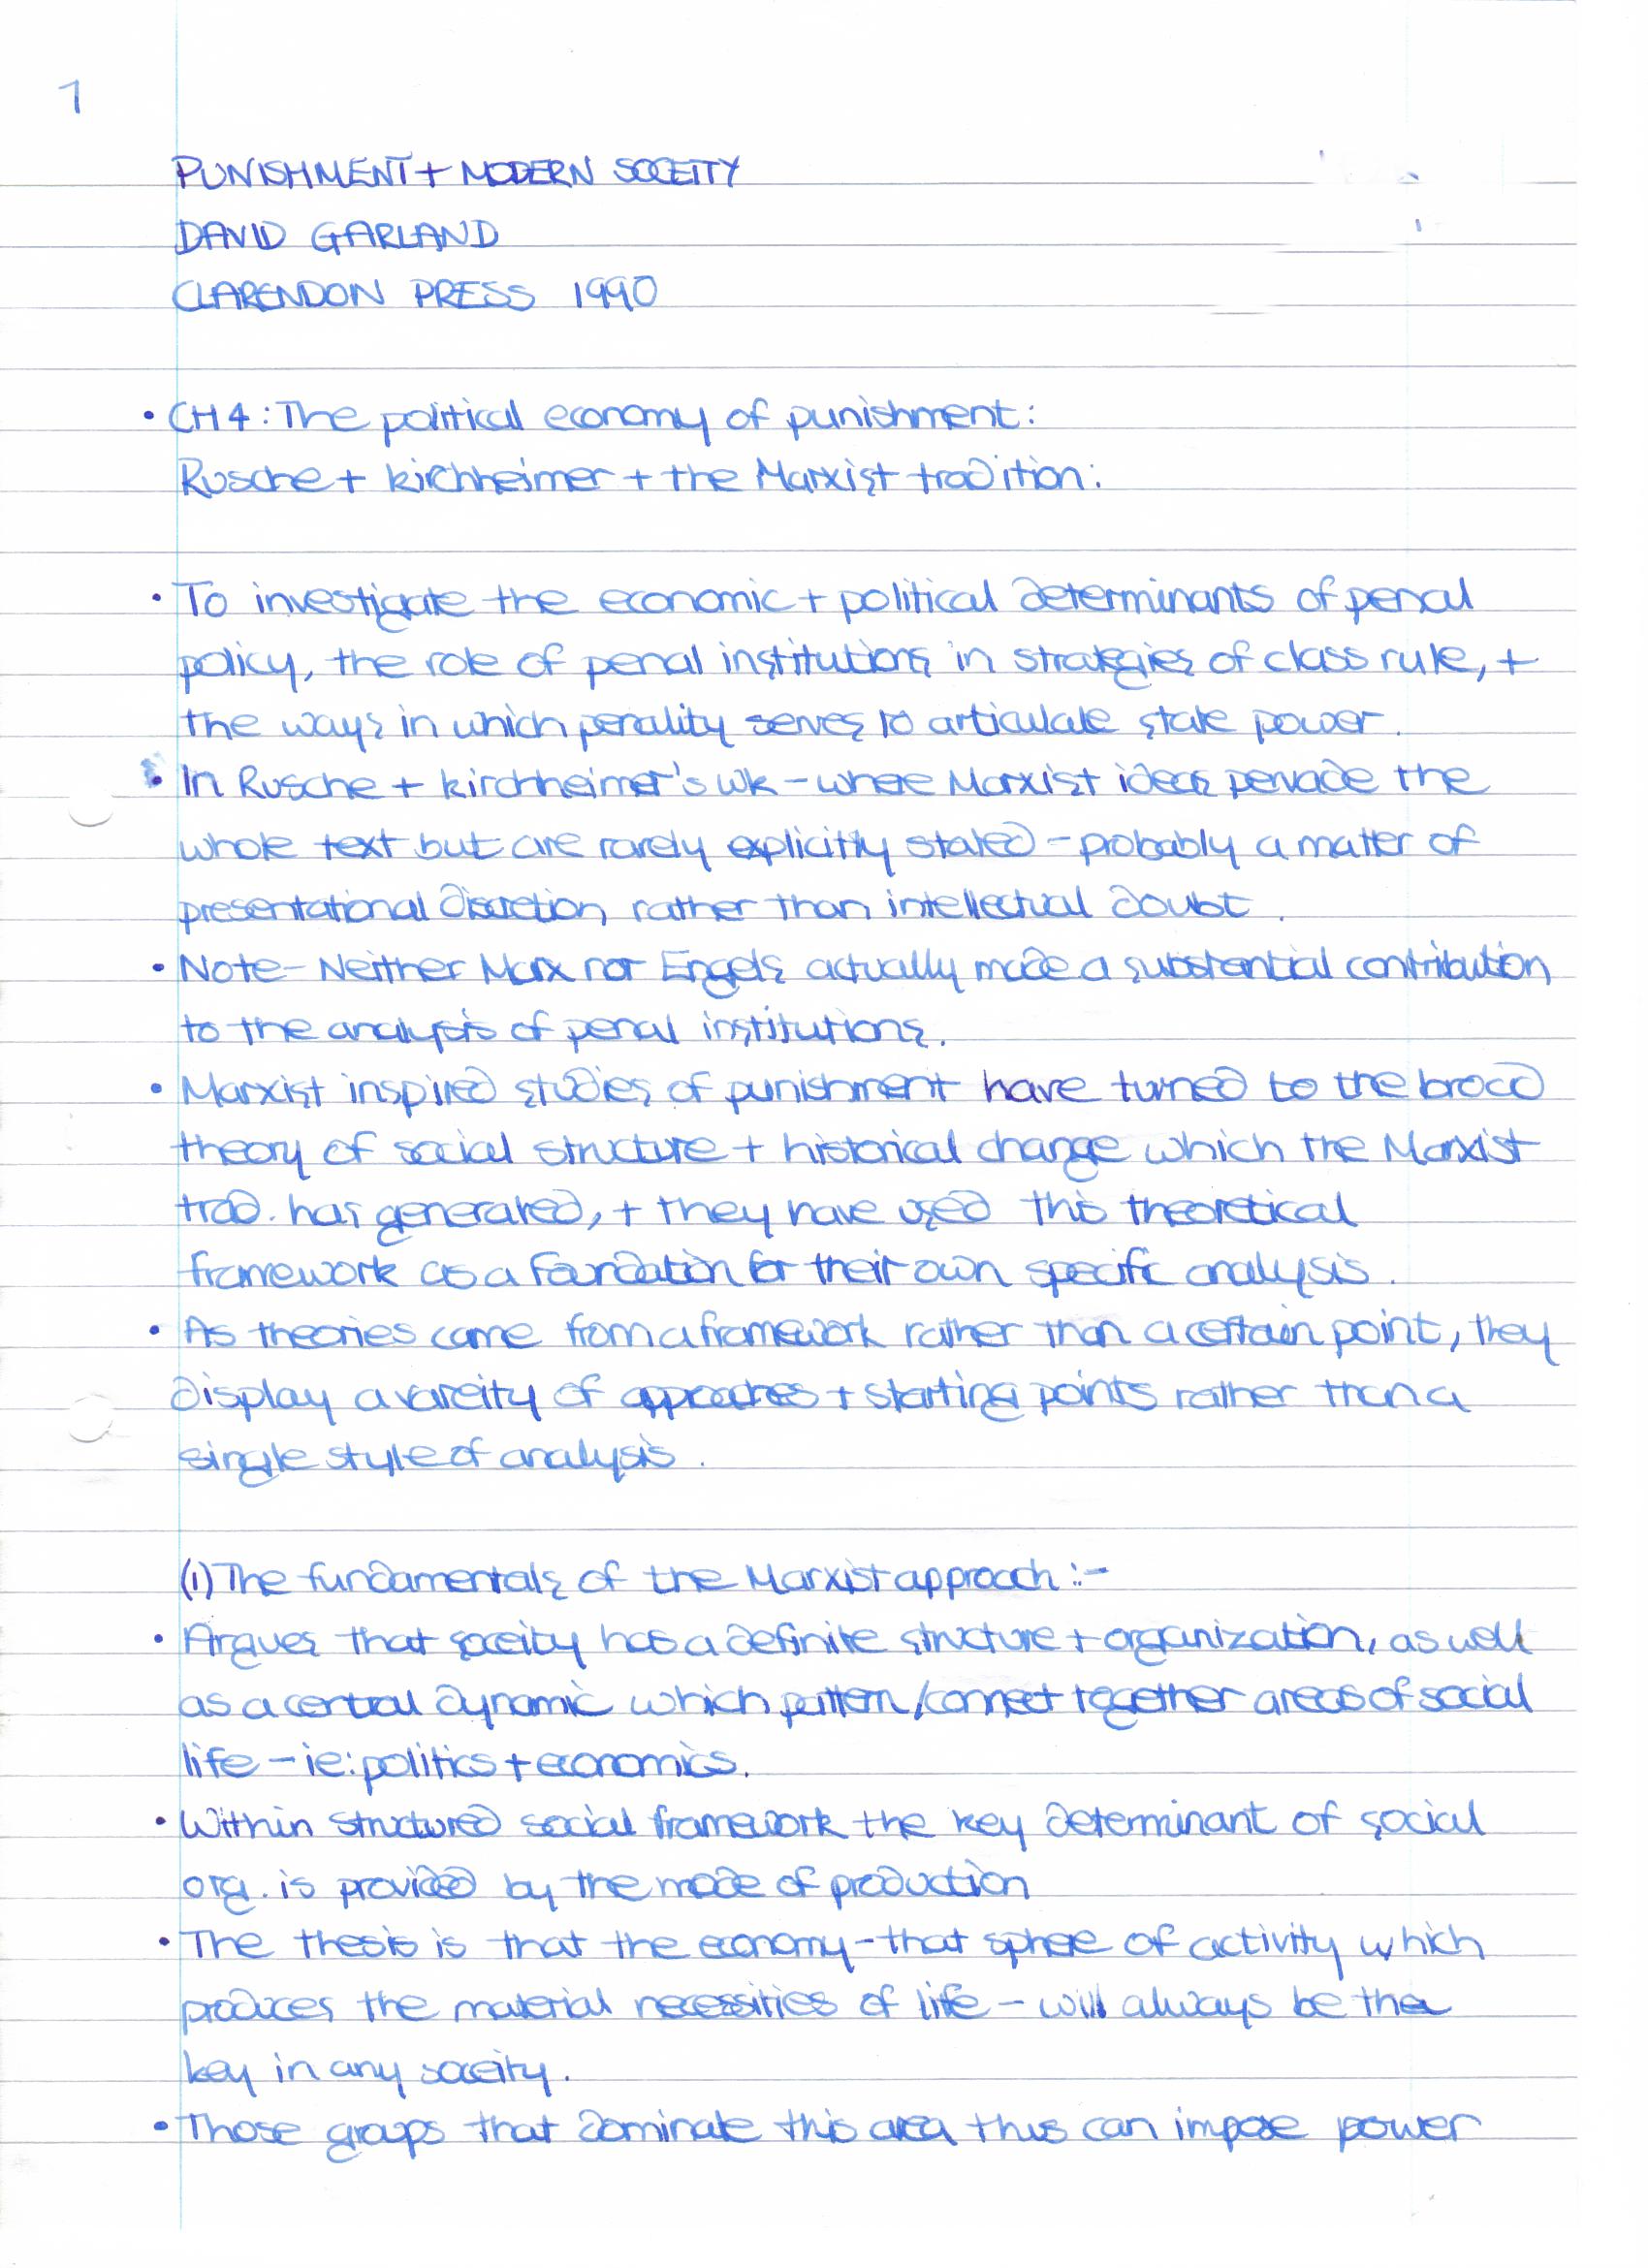 1
PUNISHMENT + MODERN SOCEITY
DAVID GARLAND
CLARENDON PRESS 1990
• CH 4: The political economy of punishment:
Rusche + kirchheimer + the Marxist tradition:
• To investigate the economic + political determinants of penal
policy, the role of penal institutions in strategies of class rule, +
the ways in which penality serves to articulate state power.
• In Rusche + kirchheimer's wk - where Marxist ideas pervade the
whole text but are rarely explicitly stated - probably a matter of
presentational discretion rather than intellectual doubt.
• Note - Neither Marx nor Engels actually made a substantial contribution
to the analysis of penal institutions.
• Marxist inspired studies of punishment have turned to the broad
theory of social structure + historical change which the Marxist
trad. has generated, + they have used this theoretical
framework as a foundation for their own specific analysis.
• As theories come from a framework rather than a certain point, they
display a vareity of approaches + starting points rather than a
single style of analysis.
(1) The fundamentals of the Marxist approach :-
• Argues that soceity has a definite structure + organization, as well
as a central dynamic which pattern/connect together areas of social
life - ie: politics + economics.
• Within structured social framework the key determinant of social
org. is provided by the mode of production
• The thesis is that the economy - that sphere of activity which
produces the material necessities of life - will always be the
key in any soceity.
• Those groups that dominate this area thus can impose power